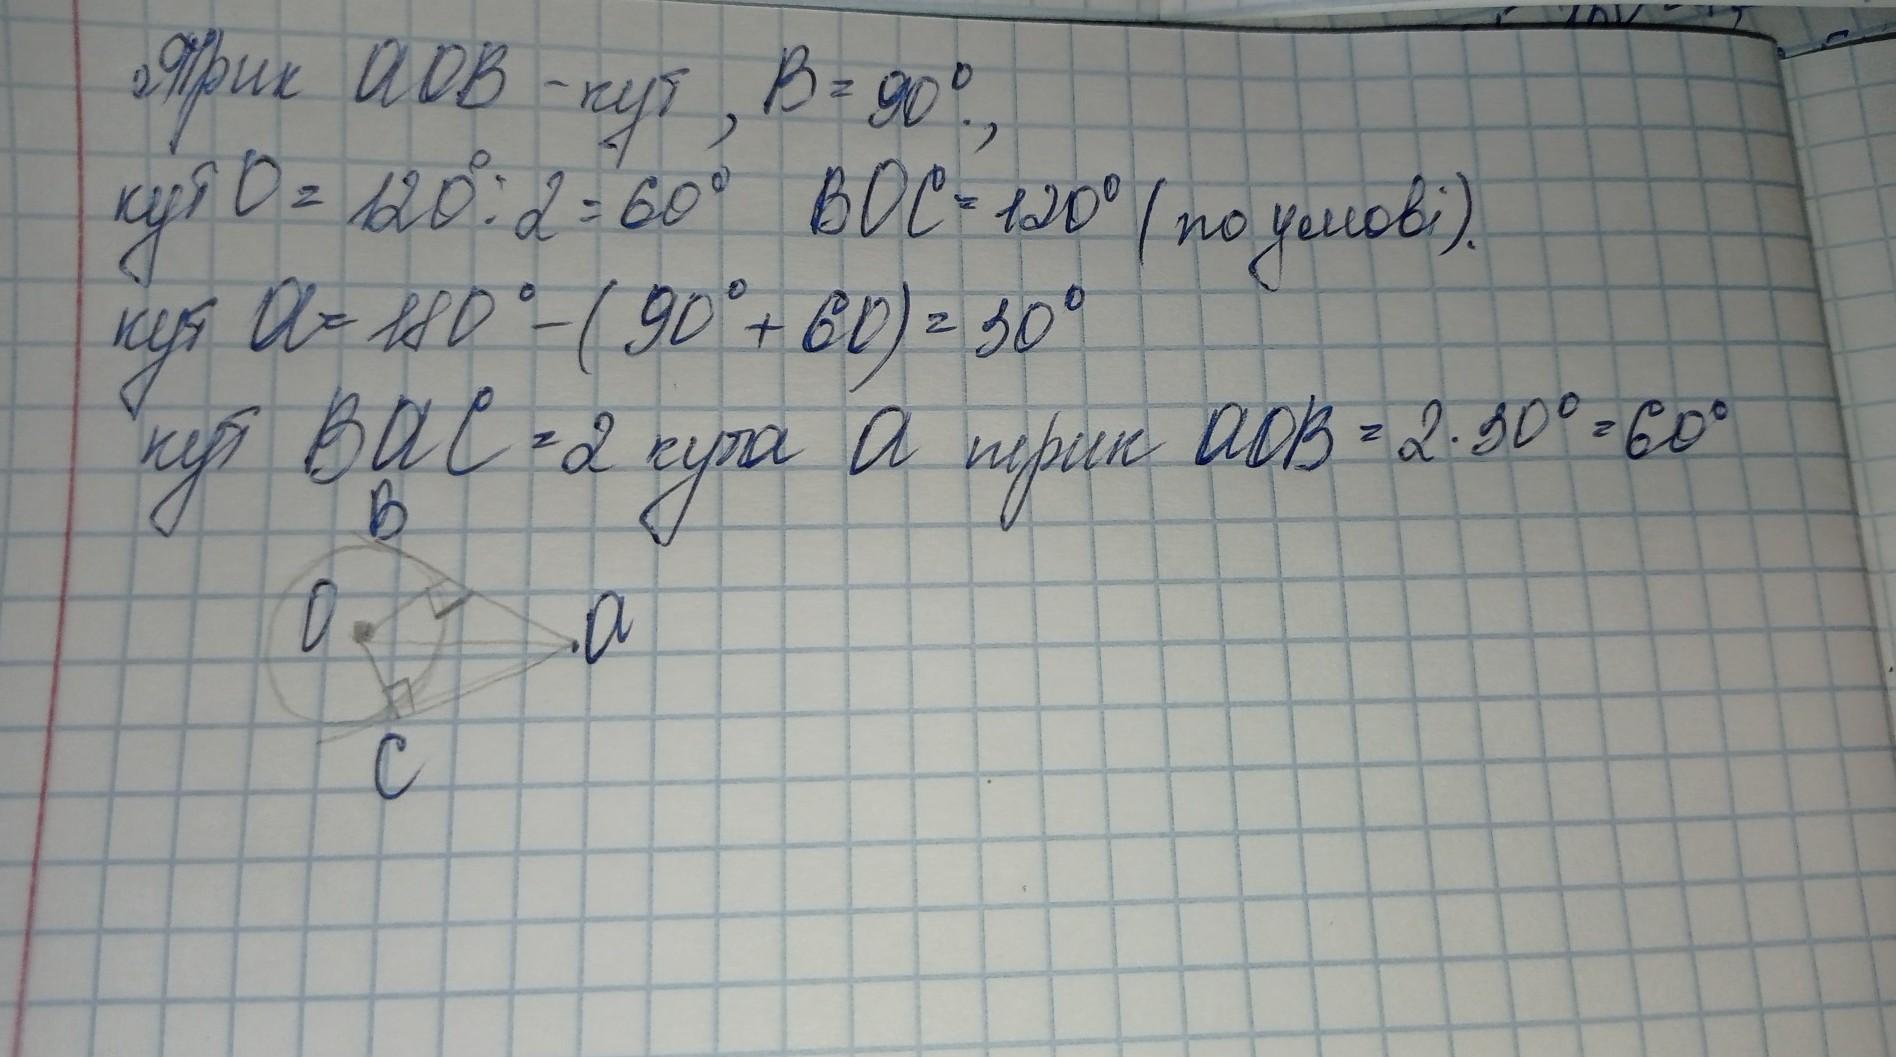 Трик АОВ - кут, В = 90°.,
кут О = 120° : 2 = 60° ВОС = 120° (по умові).
кут А = 180° - (90° + 60) = 30°
кут ВАС = 2 кута А трик АОВ = 2 · 30° = 60°
В
О
А
С